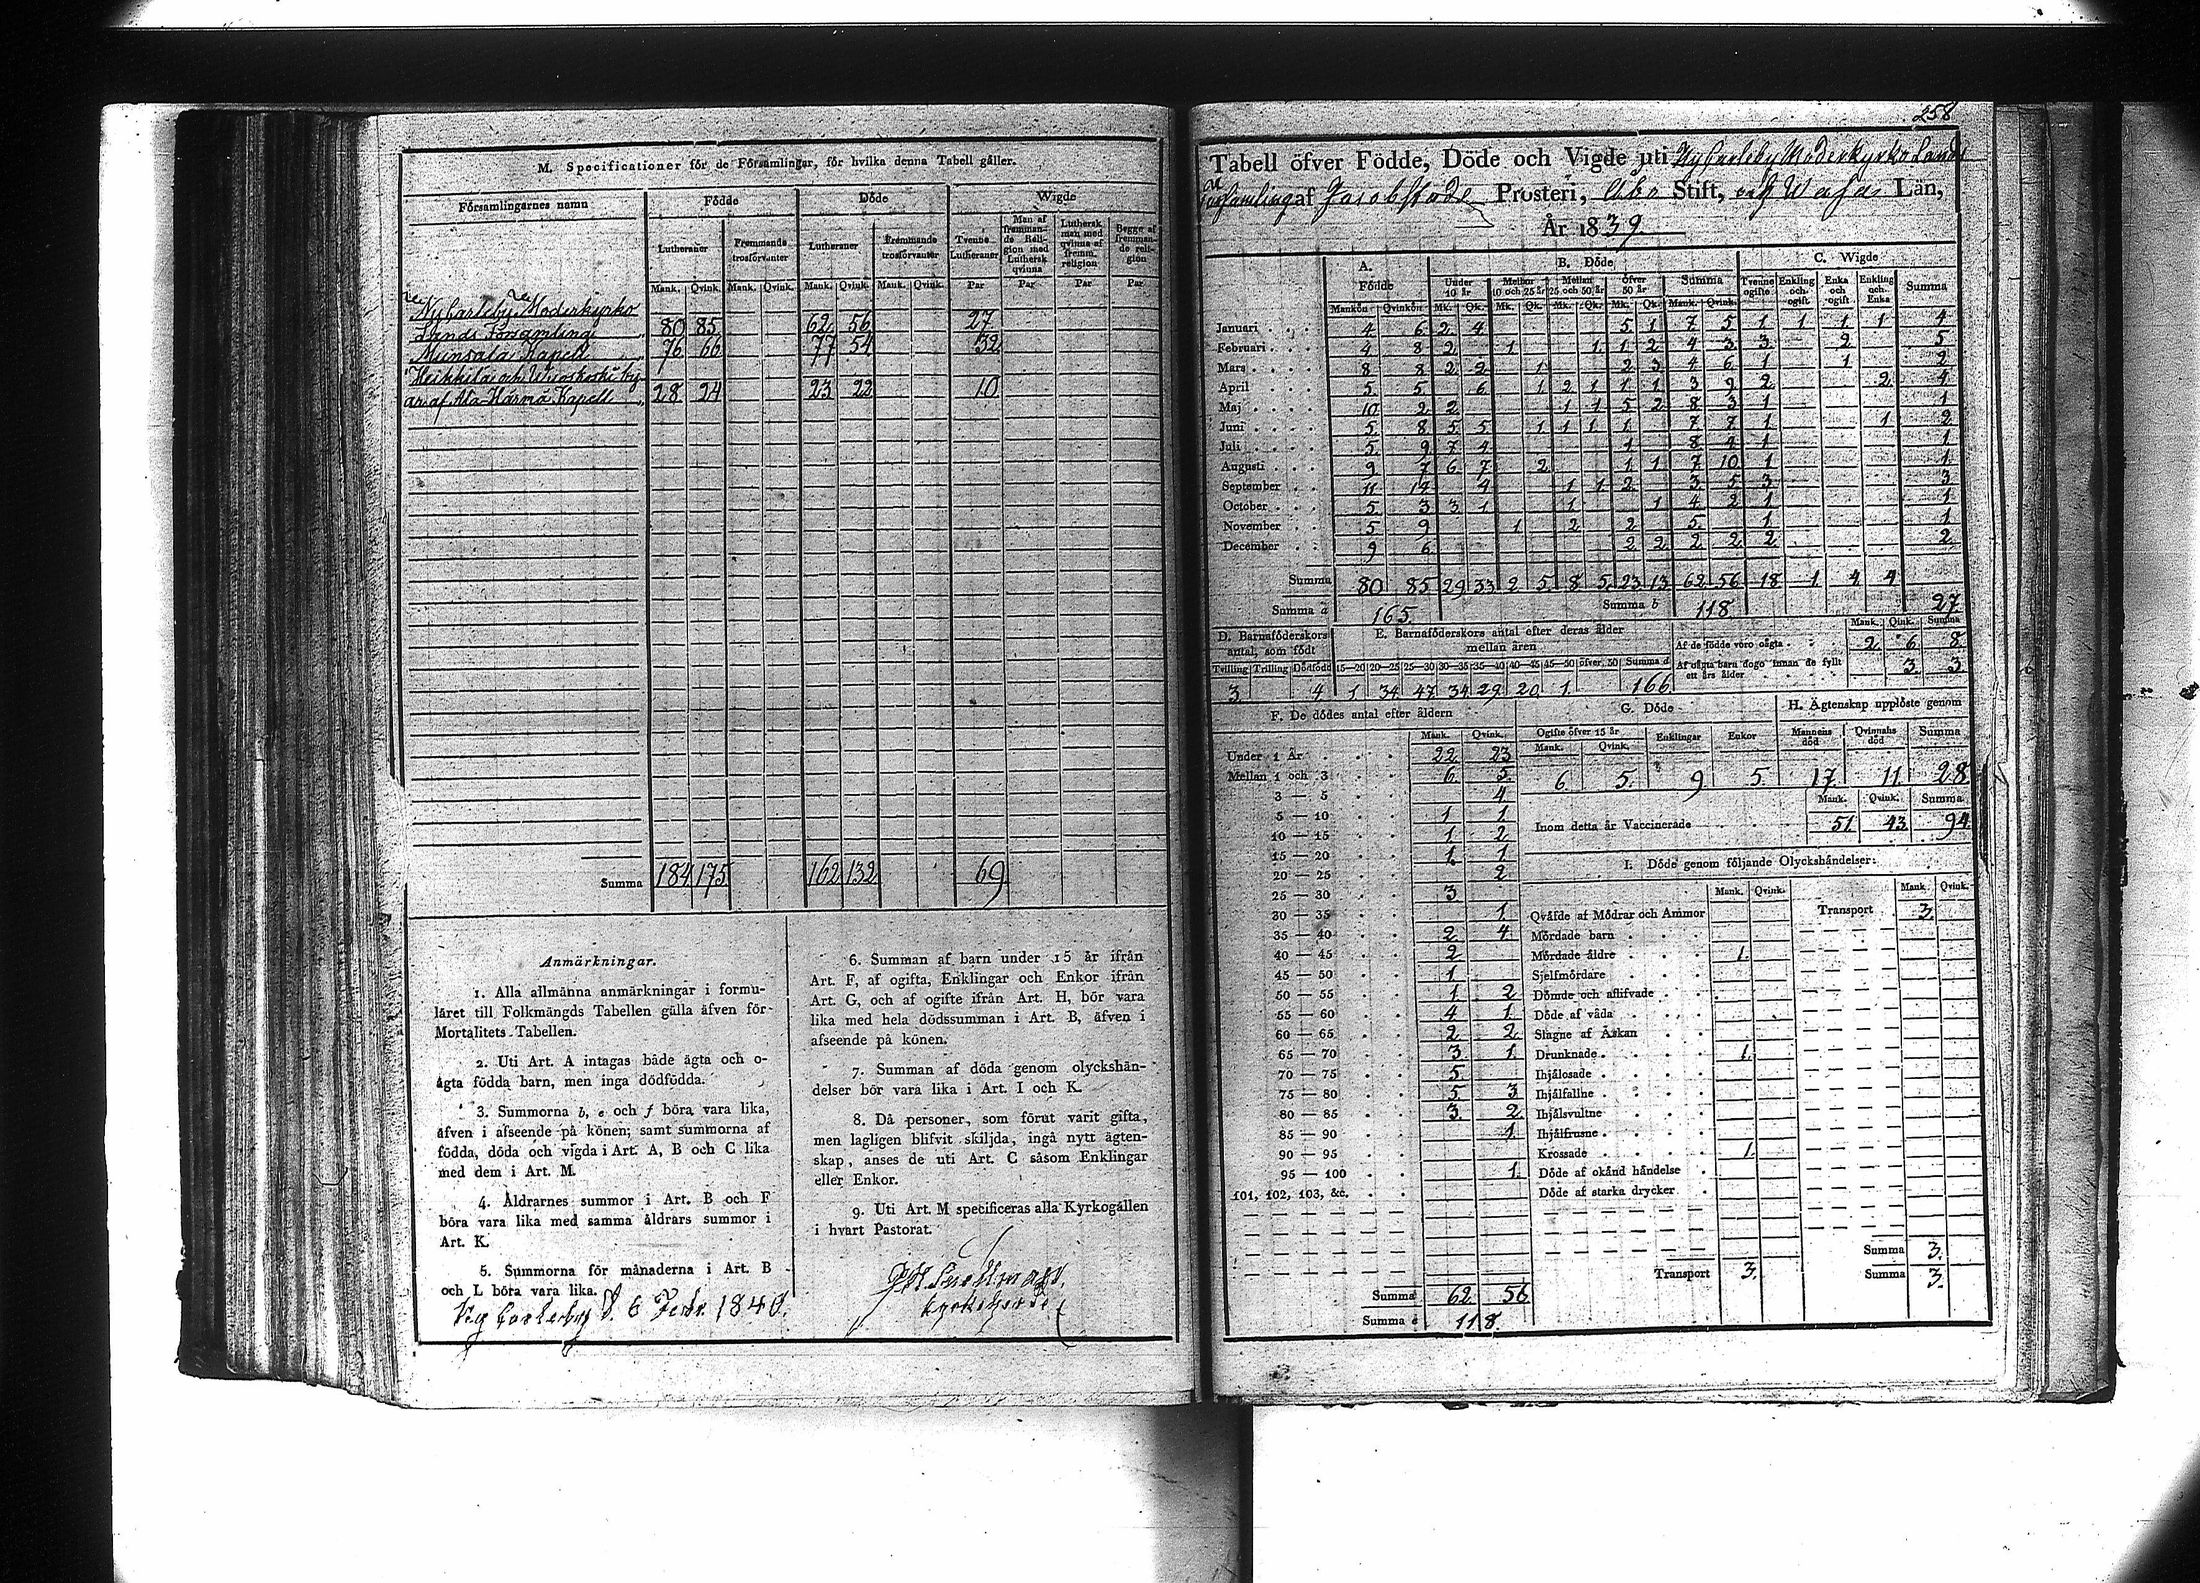 M. Specificationer för de Församlingar, för hvilka denna Tabell gäller.
Församlingarnes namn Födde Döde Wigde
Lutheraner Fremmande trosförvanter Lutheraner Fremmande trosförvanter Tvenne Lutheraner Man af fremmande Religion med Luthersk qvinna Luthersk man med qvinna af fremm. religion Begge af fremmande religion
Mank. Qvink. Mank. Qvink. Mank. Qvink. Mank. Qvink. Par Par Par Par
Nycarleby Moderkyrko
Lands Församling 80 85 62 56 27
Munsala Kapell 76 66 77 54 32
Heikkilä och Wuoskoski by-
ar af Ala-Härmä Kapell 28 24 23 22 10
Summa 184 175 162 132 69
Anmärkningar.
1. Alla allmänna anmärkningar i formu-
läret till Folkmängds Tabellen gälla äfven för
Mortalitets-Tabellen.
2. Uti Art. A intagas både ägta och o-
ägta födda barn, men inga dödfödda.
3. Summorna b, e och f böra vara lika,
äfven i afseende på könen; samt summorna af
födda, döda och vigda i Art. A, B och C lika
med dem i Art. M.
4. Åldrarnes summor i Art. B och F
böra vara lika med samma åldrars summor i
Art. K.
5. Summorna för månaderna i Art. B
och L böra vara lika.
6. Summan af barn under 15 år ifrån
Art. F, af ogifta, Enklingar och Enkor ifrån
Art. G, och af ogifte ifrån Art. H, bör vara
lika med hela dödssumman i Art. B, äfven i
afseende på könen.
7. Summan af döda genom olyckshän-
delser bör vara lika i Art. I och K.
8. Då personer, som förut varit gifta,
men lagligen blifvit skiljda, ingå nytt ägten-
skap, anses de uti Art. C såsom Enklingar
eller Enkor.
9. Uti Art. M specificeras alla Kyrkogällen
i hvart Pastorat.
Ny Carleby d. 6 Febr. 1840.
Snellman,
Kyrkoherde
258
Tabell öfver Födde, Döde och Vigde uti Ny Carleby Moderkyrko Lands
församling af Jacobstads Prosteri, Åbo Stift, och Wasa Län,
År 1839
A. Födde B. Döde C. Wigde
Under 10 år Mellan 10 och 25 år Mellan 25 och 50 år öfver 50 år Summa Tvenne ogifte Enkling och ogift Enka och ogift Enkling och Enka Summa
Mankön Qvinkön Mk. Qk. Mk. Qk. Mk. Qk. Mk. Qk. Mank. Qvink.
Januari 4 6 2 4 5 1 7 5 1 1 1 1 4
Februari 4 8 2 1 1 1 2 4 3 3 2 5
Mars 8 8 2 2 1 2 3 4 6 1 1 2
April 5 5 6 1 2 1 1 1 3 9 2 2 4
Maj 10 2 2 1 1 5 2 8 3 1 1
Juni 5 8 5 5 1 1 1 1 7 7 1 1 2
Juli 5 9 7 4 1 8 4 1 1
Augusti 9 7 6 7 2 1 1 7 10 1 1
September 11 14 4 1 1 2 3 5 3 3
October 5 3 3 1 1 1 4 2 1 1
November 5 9 1 2 2 5 1 1
December 9 6 2 2 2 2 2 2
Summa 80 85 29 33 2 5 8 5 23 13 62 56 18 1 4 4
Summa a 165 Summa b 118 27
D. Barnaföderskors antal, som födt E. Barnaföderskors antal efter deras ålder mellan åren Mank. Qink. Summa
Af de födde voro oägta 2 6 8
Tvilling Trilling Dödfödde 15—20 20—25 25—30 30—35 35—40 40—45 45—50 öfver 50 Summa d Af oägta barn dogo innan de fyllt ett års ålder 3 3
3 4 1 34 47 34 29 20 1 166
F. De dödes antal efter åldern
Mank. Qvink.
Under 1 År 22 23
Mellan 1 och 3 6 5
3 — 5 4
5 — 10 1 1
10 — 15 1 2
15 — 20 1 1
20 — 25 2
25 — 30 3
30 — 35 1
35 — 40 2 4
40 — 45 2
45 — 50 1
50 — 55 1 2
55 — 60 4 1
60 — 65 2 2
65 — 70 3 1
70 — 75 5
75 — 80 5 3
80 — 85 3 2
85 — 90 1
90 — 95
95 — 100 1
101, 102, 103, &c.
Summa 62 56
Summa e 118
G. Döde H. Ägtenskap upplöste genom
Ogifte öfver 15 år Enklingar Enkor Mannens död Qvinnans död Summa
Mank. Qvink.
6 5 9 5 17 11 28
Mank. Qvink. Summa
Inom detta år Vaccinerade 51 43 94
I. Döde genom följande Olyckshändelser:
Mank. Qvink. Mank. Qvink.
Qväfde af Mödrar och Ammor Transport 3
Mördade barn
Mördade äldre 1
Sjelfmördare
Dömde och aflifvade
Döde af våda
Slagne af Åskan
Drunknade 1
Ihjälosade
Ihjälfallne
Ihjälsvultne
Ihjälfrusne
Krossade 1
Döde af okänd händelse
Döde af starka drycker
Summa 3
Transport 3 Summa 3